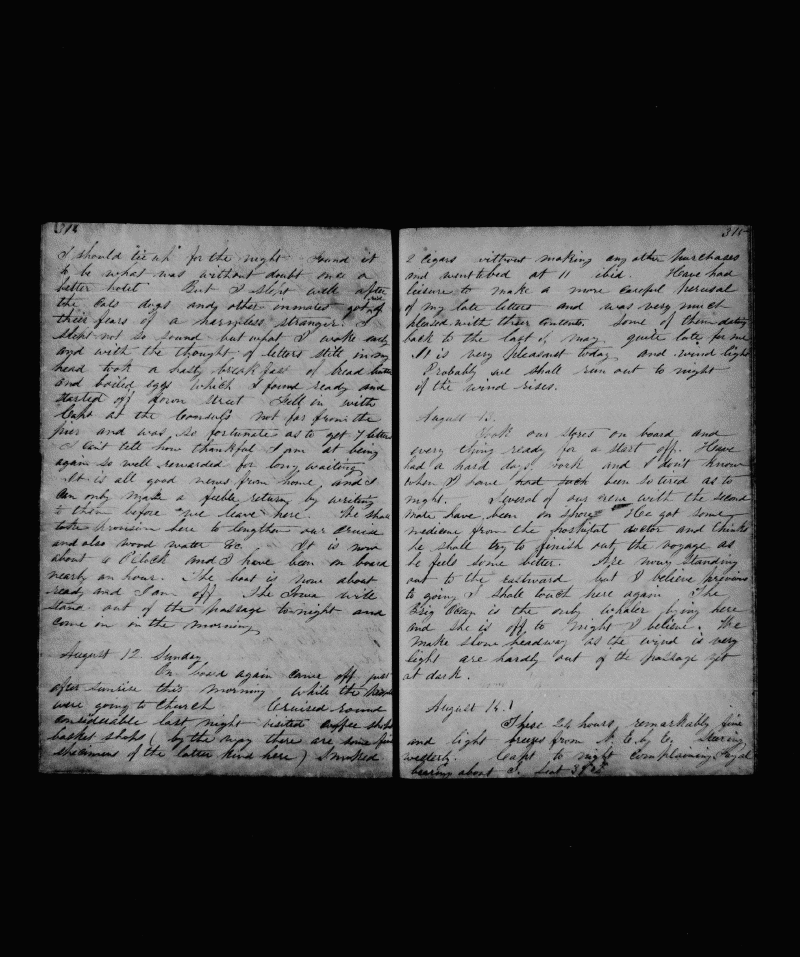 314
I should "tie up" for the night found it
to be what was without doubt once a
better hotel But I slept well after
the cats dogs and other inmates got rid of
their fears of a harmless stranger. I
slept not so sound but what I woke early
and with the thought of letters still in my
head took a hasty breakfast of bread butter
and boiled eggs which I found ready and
started off down street Fell in with
Capt at the Consuls not far from the
pier and was so fortunate as to get 7 letters
I can't tell how thankful I am at being
again so well rewarded for long waiting
It is all good news from home, and I
can only make a feeble return by writing
to them before we leave here. We shall
take provision here to lengthen our cruise
and also wood water &c. It is now
about 4 O'Clock and I have been on board
nearly an hour. The boat is now about
ready and I am off. The Iowa will
stand out of the passage to night and
come in in the morning
August 12 Sunday
On board again came off just
after sunrise this morning while the
were going to Church Cruised round
considerable last night visited coffee shops
basket shops (by the way there are some fine
specimens of the latter kind here) Smoked
315
2 cigars without making any other purchases
and went to bed at 11 ibid. Have had
leisure to make a more careful perusal
of my late letters and was very much
pleased with their contents. Some of them dating
back to the last of May quite late for me
It is very pleasant today and wind light
Probably we shall run out to night
if the wind rises.
August 13.
Took our stores on board and
every thing ready for a start off. Have
had a hard days work and I don't know
when I have had such been so tired as to
night. Several of our crew with the second
mate have been on shore He got some
medicine from the hospital doctor and thinks
he shall try to finish out the voyage as
he feels some better. Are now standing
out to the eastward but I believe previous
to going I shall touch here again The
Brig Ocean is the only whaler lying here
and she is off to night I believe. We
make slow headway as the wind is very
light are hardly out of the passage yet
at dark.
August 14.
These 24 hours, remarkably fine
and light breezes from N. E. by E. Steering
westerly. Capt to night complaining Fayal
bearing about S. Lat 39